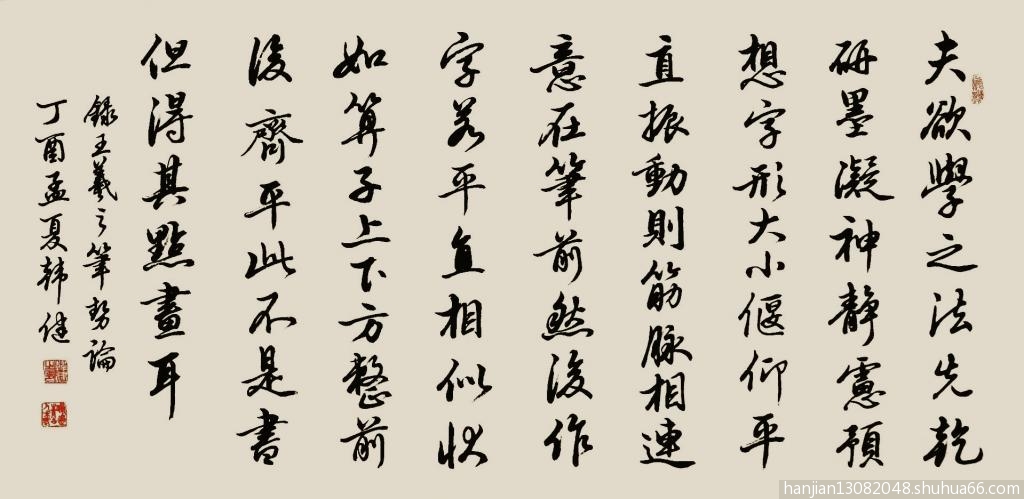 夫欲學之法先乾
研墨凝神靜慮預
想字形大小偃仰平
直振動則筋脉相連
意在筆前然後作
字若平直相似狀
如算子上下方整前
後齊平此不是書
但得其點畫耳
錄王羲之筆勢論
丁酉孟夏韩健
hanjian13082048.shuhua66.com